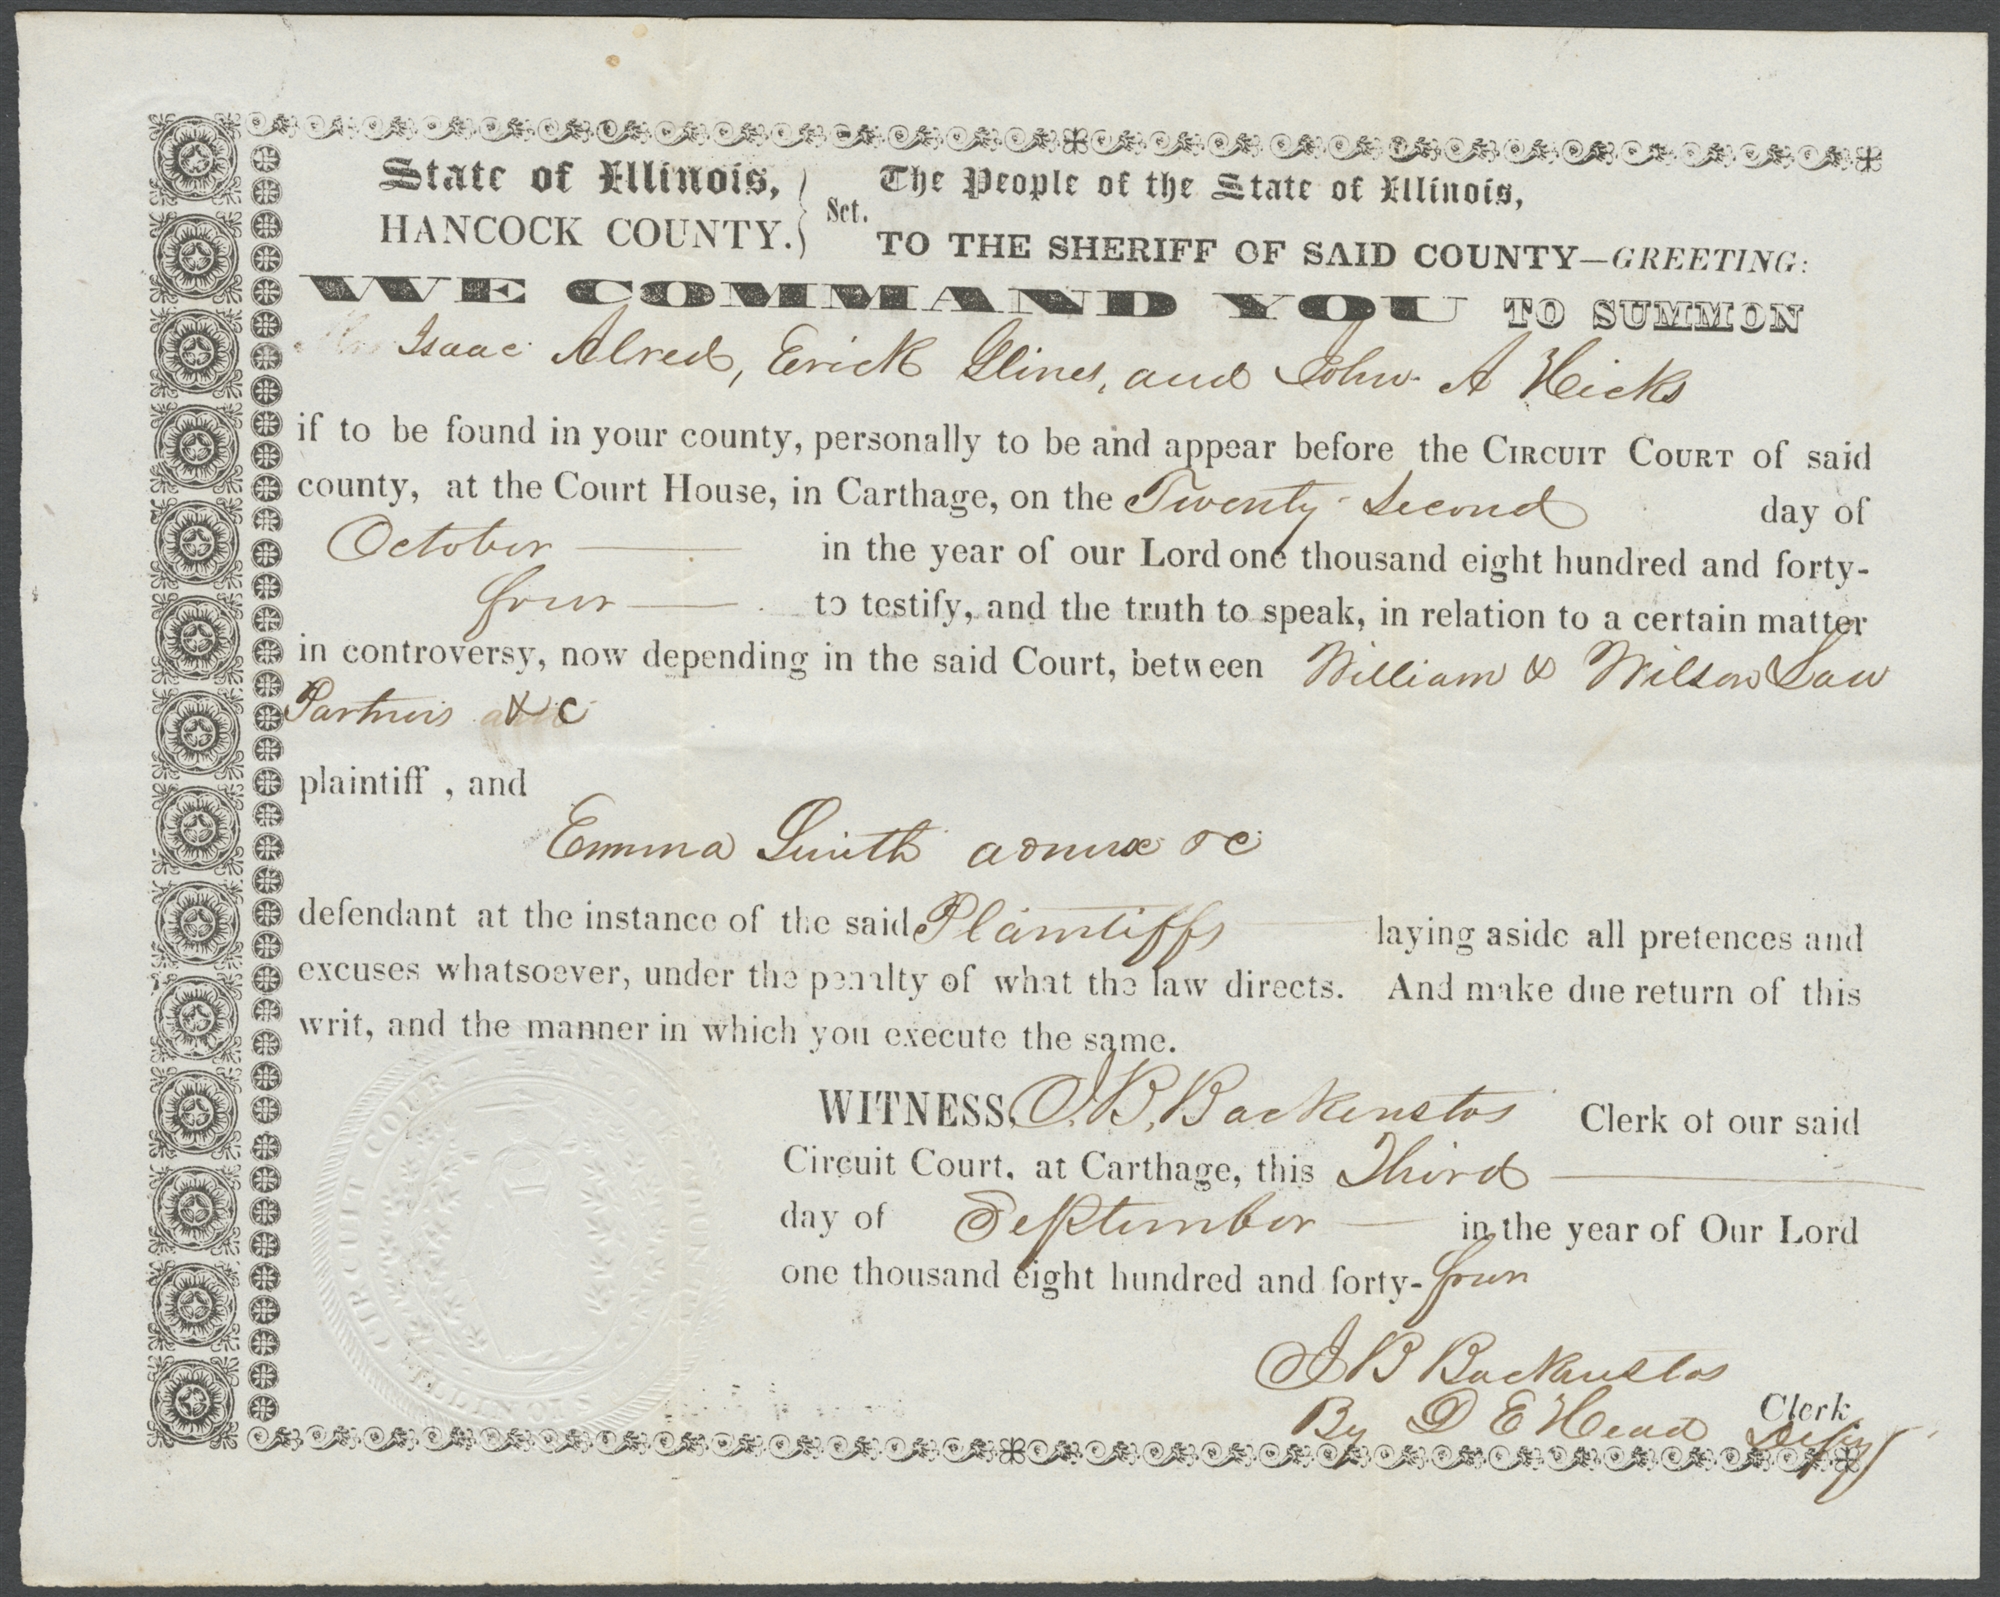 State of Illinois,
HANCOCK COUNTY.
Sct.
The People of the State of Illinois,
TO THE SHERIFF OF SAID COUNTY—GREETING:
WE COMMAND YOU TO SUMMON
Isaac Alred, Erick Glines, and John A Hicks
if to be found in your county, personally to be and appear before the CIRCUIT COURT of said
county, at the Court House, in Carthage, on the Twenty Second day of
October in the year of our Lord one thousand eight hundred and forty-
four to testify, and the truth to speak, in relation to a certain matter
in controversy, now depending in the said Court, between William & Wilson Law
Partners & c
plaintiff , and
Emma Smith admx &c
defendant at the instance of the said Plaintiffs laying aside all pretences and
excuses whatsoever, under the penalty of what the law directs. And make due return of this
writ, and the manner in which you execute the same.
WITNESS, J. B. Backenstos Clerk of our said
Circuit Court, at Carthage, this Third
day of September in the year of Our Lord
one thousand eight hundred and forty-four
J B Backenstos
Clerk
By D E Head Depy
CIRCUIT COURT
ILLINOIS